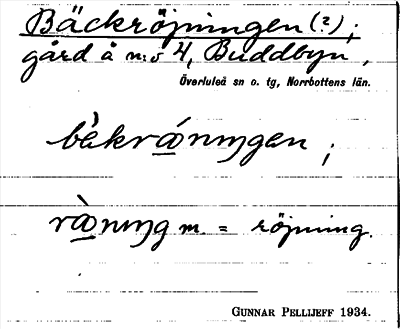 Bäckröjningen (?);
gård å n:o 4, Buddbyn,
Överluleå sn o. tg, Norrbottens län.
bèkrǿniŋgen;
rø̀niŋg m. = röjning.
GUNNAR PELLIJEFF 1934.